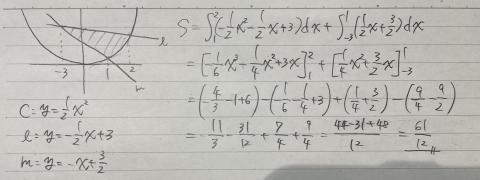 l
-3 1 2
m
C=y=½x²
l=y=-½x+3
m=y=-x+3/2
S=∫₁²(-½x²-½x+3)dx+∫₋₃¹(½x+3/2)dx
=[-1/6x³-1/4x²+3x]₁²+[1/4x²+3/2x]₋₃¹
=(-4/3-1+6)-(-1/6-1/4+3)+(1/4+3/2)-(9/4-9/2)
=-11/3-31/12+7/4+9/4=44-31+48/12=61/12